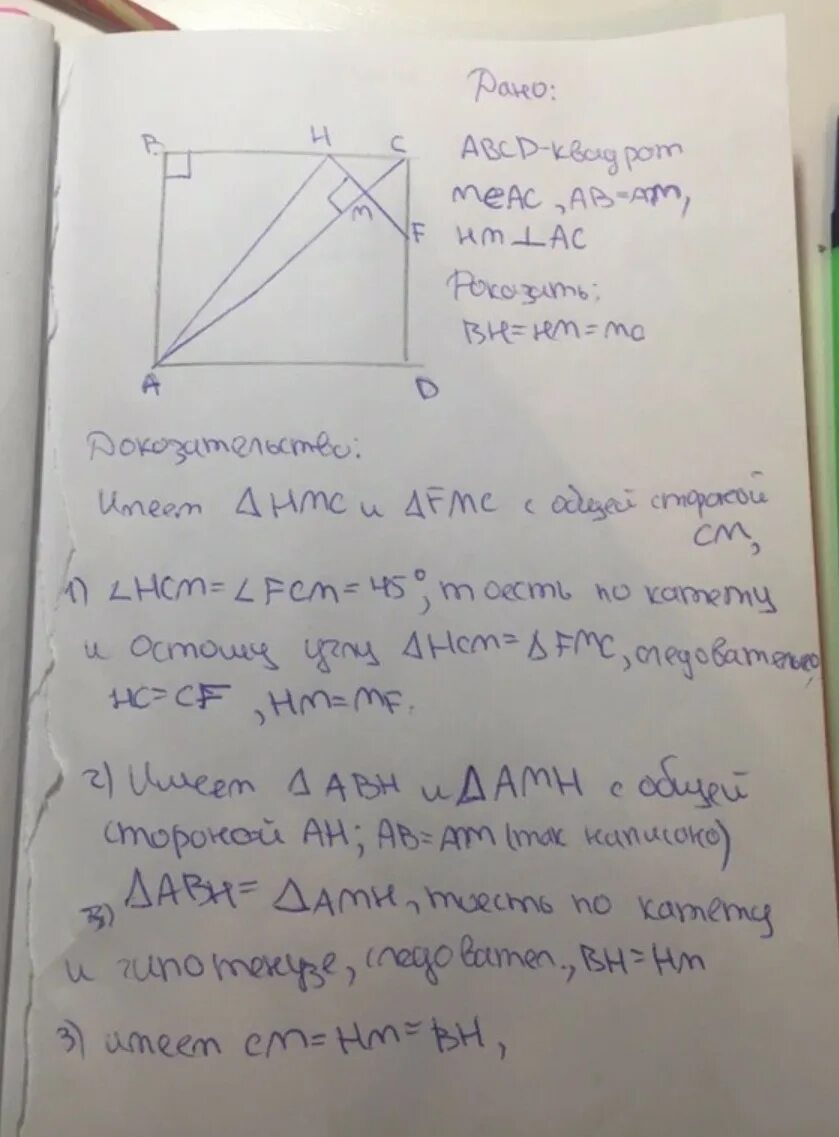 Дано:
B H C
ABCD-квадрат
M
M∈AC, AB=AM,
F
HM⊥AC
Доказать:
BH=HM=MC
A D
Доказательство:
Имеем ΔHMC и ΔFMC с общей стороной
CM,
1) ∠HCM=∠FCM=45°, тоесть по катету
и остому углу ΔHCM=ΔFMC, следовательно,
HC=CF, HM=MF.
2) Имеем ΔABH и ΔAMH с общей
стороной AH; AB=AM (так написано)
3) ΔABH=ΔAMH, тоесть по катету
и гипотенузе, следовател., BH=HM
3) имеем CM=HM=BH,